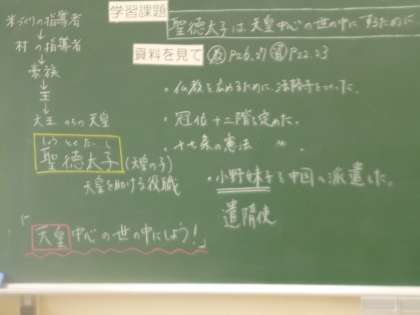 学習課題
聖徳太子は天皇中心の世の中にするために
米づくりの指導者
↓
村の指導者
↓
豪族
↓
王
↓
大王 のちの天皇
しょうとくたいし
聖徳太子(天皇の子)
天皇を助ける役職
「天皇中心の世の中にしよう!」
資料を見て
P26,27
P22.23
・仏教を広めるために、法隆寺をつくった。
・冠位十二階を定めた。
・十七条の憲法 〃 。
・小野妹子を中国へ派遣した。
遣隋使